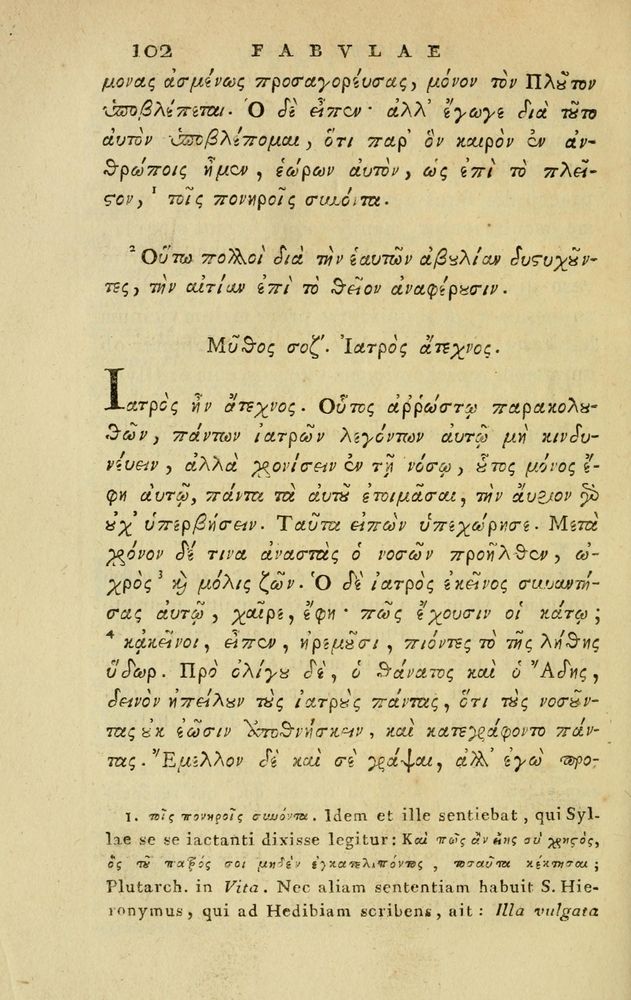 102 FABVLAE
μονας ἀσμένως προσαγορέυσας, μόνον τὸν Πλȣ͂τον
ὑποβλέπεται. Ὁ δὲ εἶπεν· ἀλλ᾽ ἔγωγε διὰ τȣ͂το
ἀυτὸν ὑποβλέπομαι, ὅτι παρ᾽ ὃν καιρὸν ἐν ἀν-
θρώποις ἦμεν, ἑώρων ἀυτὸν, ὡς ἐπὶ τὸ πλεῖ-
ϛον, ¹ τοῖς πονηροῖς συνόντα.
² Οὕτω πολλοὶ διὰ τὴν ἑαυτῶν ἀβȣλίαν δυϛυχȣ͂ν-
τες, τὴν αἰτίαν ἐπὶ τὸ θεῖον ἀναφέρȣσιν.
Μῦθος σοζ΄. Ἰατρὸς ἄτεχνος.
Ιατρὸς ἦν ἄτεχνος. Οὗτος ἀῤῥώστῳ παρακολȣ-
θῶν, πάντων ἰατρῶν λεγόντων ἀυτῷ μὴ κινδυ-
νέυειν, ἀλλὰ χρονίσειν ἐν τῇ νόσῳ, ȣ̔͂τος μόνος ἔ-
φη ἀυτῷ, πάντα τὰ ἀυτȣ͂ ἑτοιμάσαι, τὴν ἄυριον γὸ
ȣ̓χ᾽ ὑπερβήσειν. Ταῦτα εἰπὼν ὑπεχώρησε. Μετὰ
χρόνον δέ τινα ἀναστὰς ὁ νοσῶν προῆλθεν, ὠ-
χρὸς ³ ϗ μόλις ζῶν. Ὁ δὲ ἰατρὸς ἐκεῖνος συναντή-
σας ἀυτῷ, χαῖρε, ἔφη· πῶς ἔχουσιν οἱ κάτω;
⁴ κἀκεῖνοι, εἶπεν, ἠρεμȣ͂σι, πιόντες τὸ τῆς Λήθης
ὕδωρ. Πρὸ ὀλίγȣ δὲ, ὁ θάνατος καὶ ὁ Ἅδης,
δεινὸν ἠπείλȣν τȣ̀ς ἰατρȣ̀ς πάντας, ὅτι τȣ̀ς νοσȣ͂ν-
τας ȣ̓κ ἐῶσιν ἀποθνήσκειν, καὶ κατεγράφοντο πάν-
τας. Ἔμελλον δὲ καὶ σὲ γράψαι, ἀλλ᾽ ἐγὼ προ-
1. τοῖς πονηροῖς συνόντα. Idem et ille sentiebat, qui Syl-
lae se se iactanti dixisse legitur: Καὶ πῶς ἂν ἔιης σὺ χρηϛὸς,
ὃς τȣ͂ πατρός σοι μηδὲν ἐγκαταλιπόντος, τοσαῦτα κέκτησαι;
Plutarch. in Vita. Nec aliam sententiam habuit S. Hie-
ronymus, qui ad Hedibiam scribens, ait: Illa vulgata